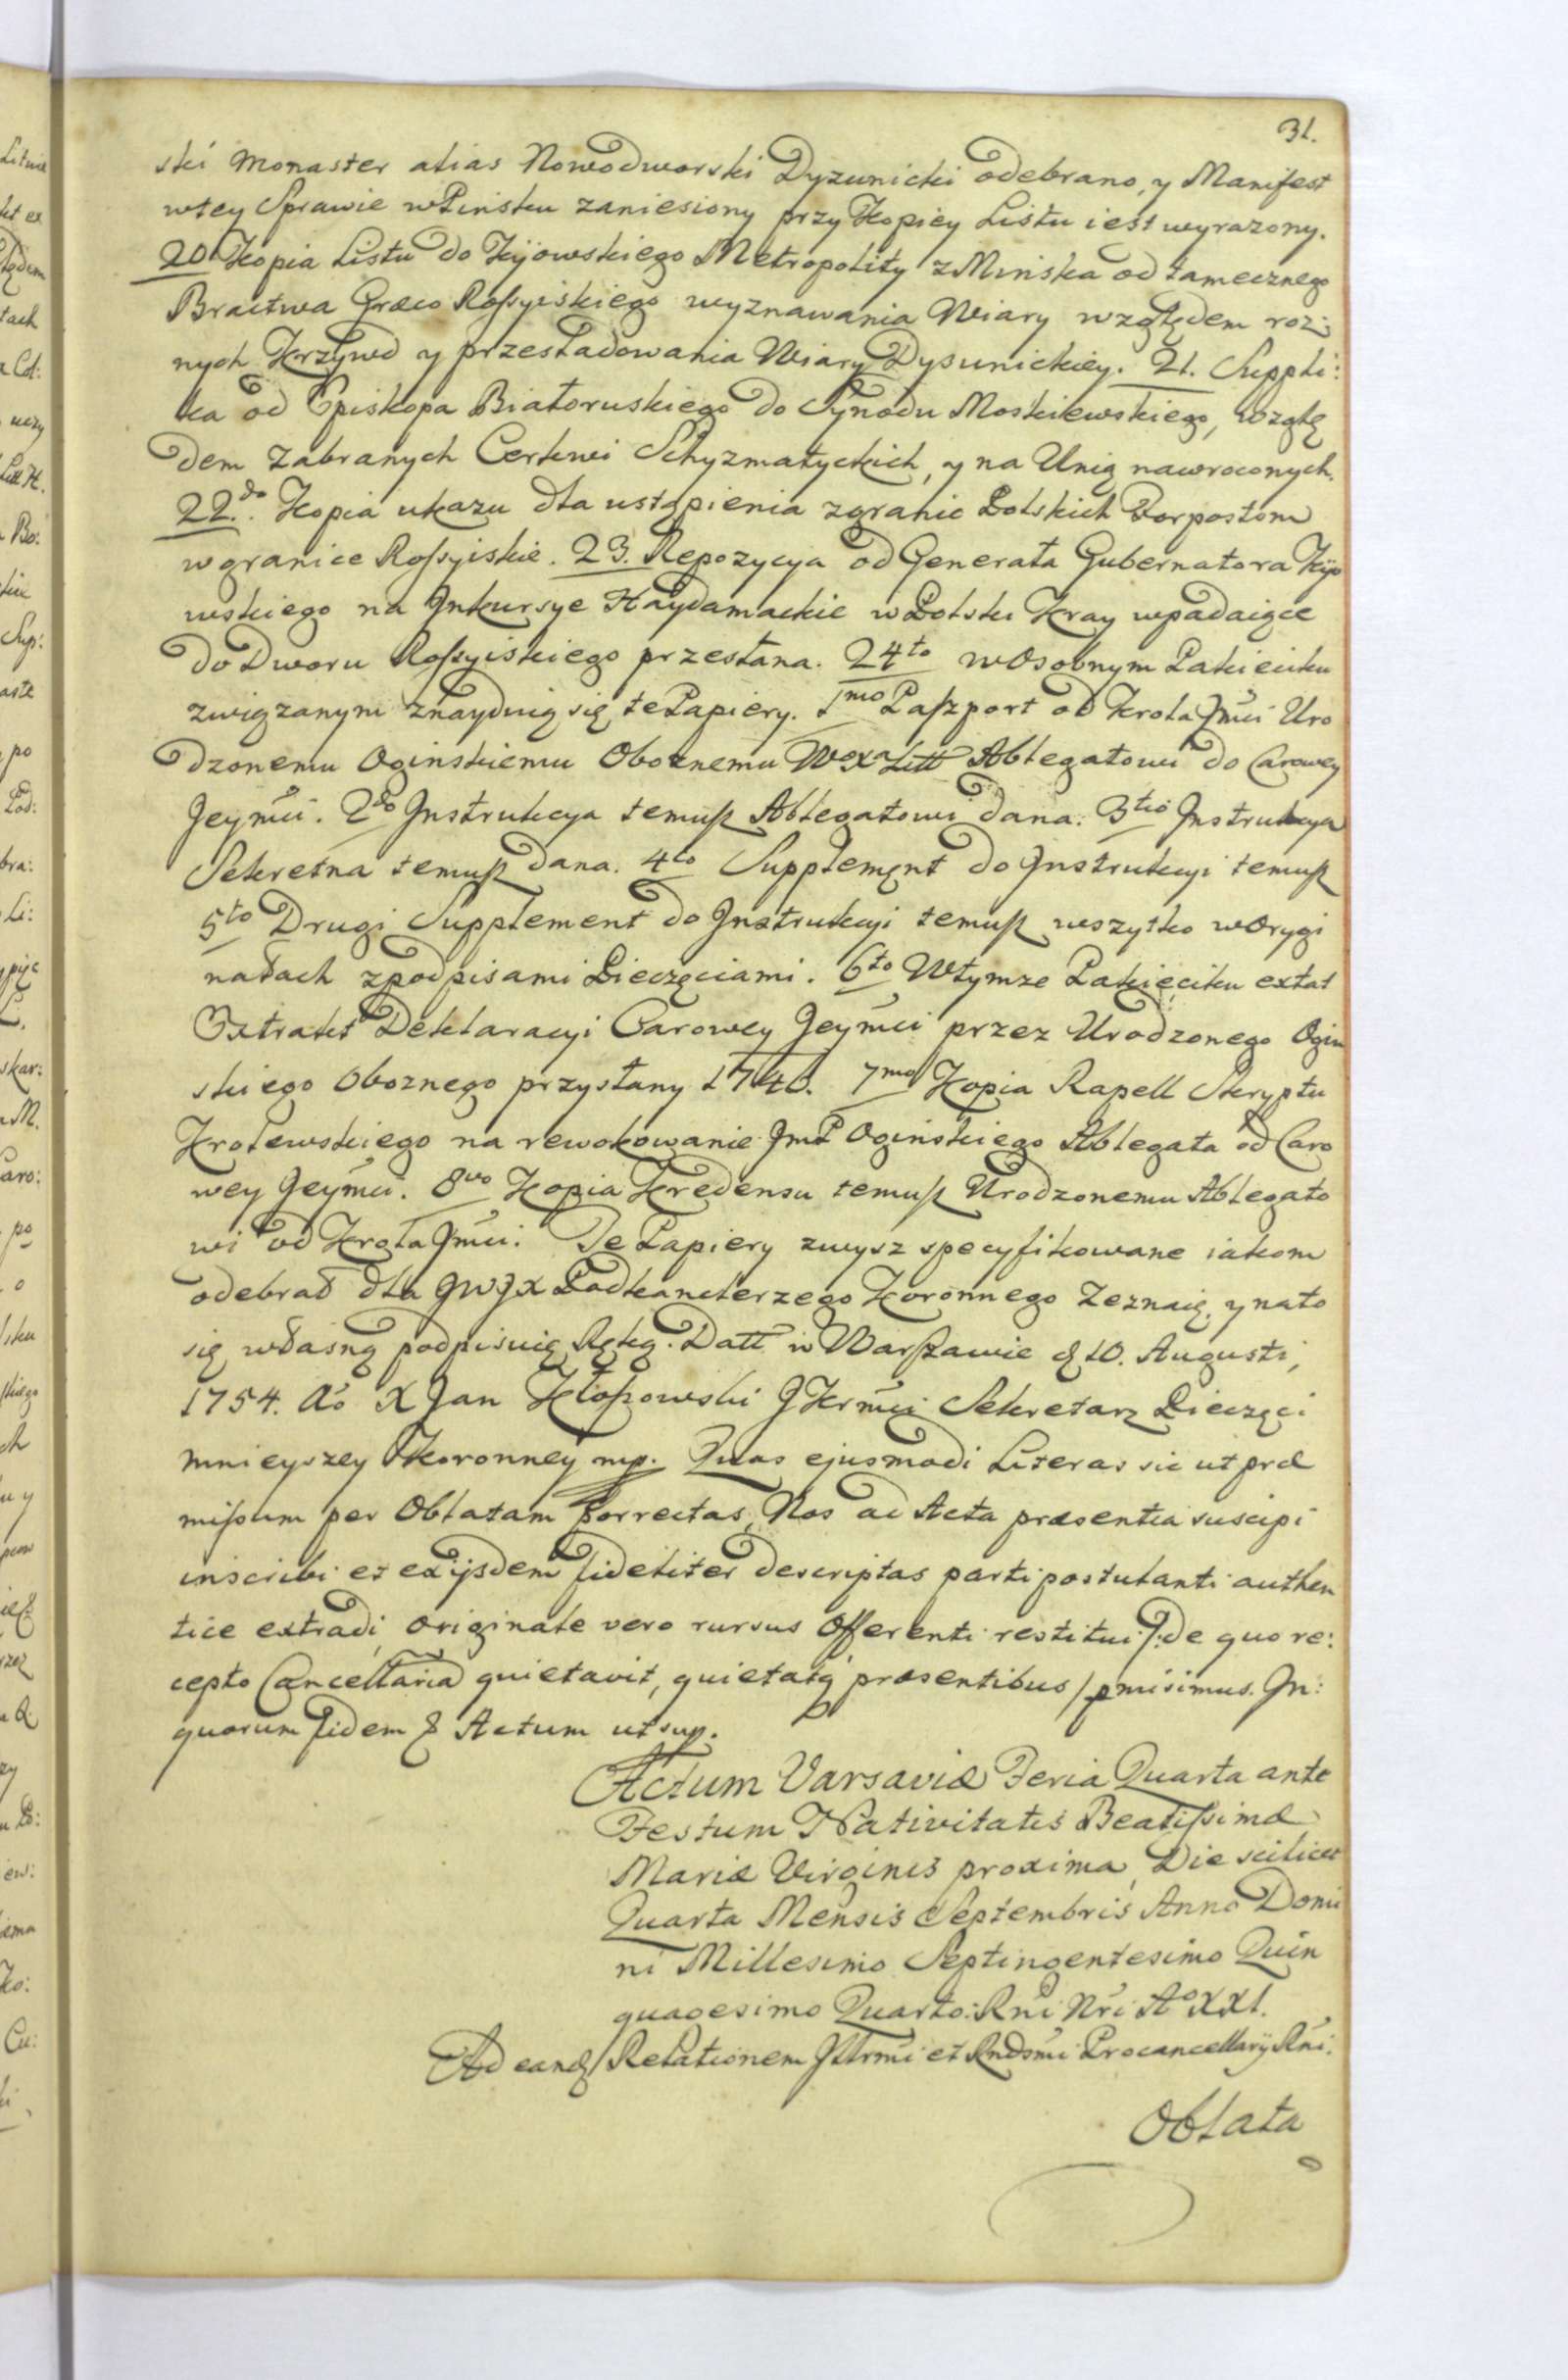 31.
ski Monaster alias Nowodworski Dyzunicki odebrano, y Manifest
wtey Sprawie wPinsku zaniesiony przy Kopiey Listu iest wyrazony.
20 Kopia Listu do Kijowskiego Metropolity z Minska od tamecznego
Bractwa Græco Rossyiskiego wyznawania Wiary względem roz:
nych Krzywd y przesladowania Wiary Dysunickiey. 21. Suppli:
ka od Episkopa Białoruskiego do Synodu Moskiewskiego, wzglę
dem zabranych Cerkwi Schyzmatyckich, y na Unią nawroconych.
22.do Kopia ukazu dla ustąpienia zgranic Polskich Forpostom
wgranice Rossyiskie. 23. Repozycya od Generała Gubernatora Kijo
wskiego na Inkursye Haydamackie wPolski Kray wpadaiące
do Dworu Rossyiskiego przesłana. 24to wOsobnym Pakieciku
związanym znayduią się tePapiery. 1mo Paszport od Krola Jmci Uro
dzonemu Oginskiemu Oboznemu WoXa Litt Ablegatowi do Carowey
Jeymci. 2do Instrukcya temuſz Ablegatowi dana. 3tio Instrukcya
Sekretna temuſz dana. 4to Supplement do Instrukcyi temuſz
5to Drugi Supplement do Instrukcyi temuſz wszytko wOrygi
nałach zpodpisami Pieczęciami. 6to Wtymze Pakieciku extat
Extrakt Deklaracyi Carowey Jeymci przez Urodzonego Ogin
skiego Oboznego przysłany 1740. 7mo Kopia Rapell Skryptu
Krolewskiego na rewokowanie JmP Oginskiego Ablegata od Caro
wey Jeymci. 8vo Kopia Kredensu temuſz Urodzonemu Ablegato
wi od Krola Jmci. Te Papiery zwysz specyfikowane iakom
odebrał dla JWJX Podkanclerzego Koronnego Zeznaię, y nato
się własną podpisuię Ręką. Datt w Warszawie d 10. Augusti,
1754. Ao X Jan Kłossowski JKrmci Sekretarz Pieczęci
mnieyszey Koronney mp. Quas ejusmodi Literas sic ut præ
missum per Oblatam porrectas, Nos ad Acta præsentia suscipi
inscribi et ex ijsdem fideliter descriptas parti postulanti authen
tice extradi, originale vero rursus Offerenti restitui /: de quo re:
cepto Cancellaria quietavit, quietatq præsentibus / pmisimus. In:
quorum fidem & Actum ut sup.
Actum Varsaviæ Feria Quarta ante
Festum Nativitatis Beatissimæ
Mariæ Virginis proxima, Die scilicet
Quarta Mensis Septembris Anno Domi
ni Millesimo Septingentesimo Quin
quagesimo Quarto: Rni Nri Ao XXI.
Ad eand Relationem Illrmi et Rndsmi Procancellarij Rni.
Oblata